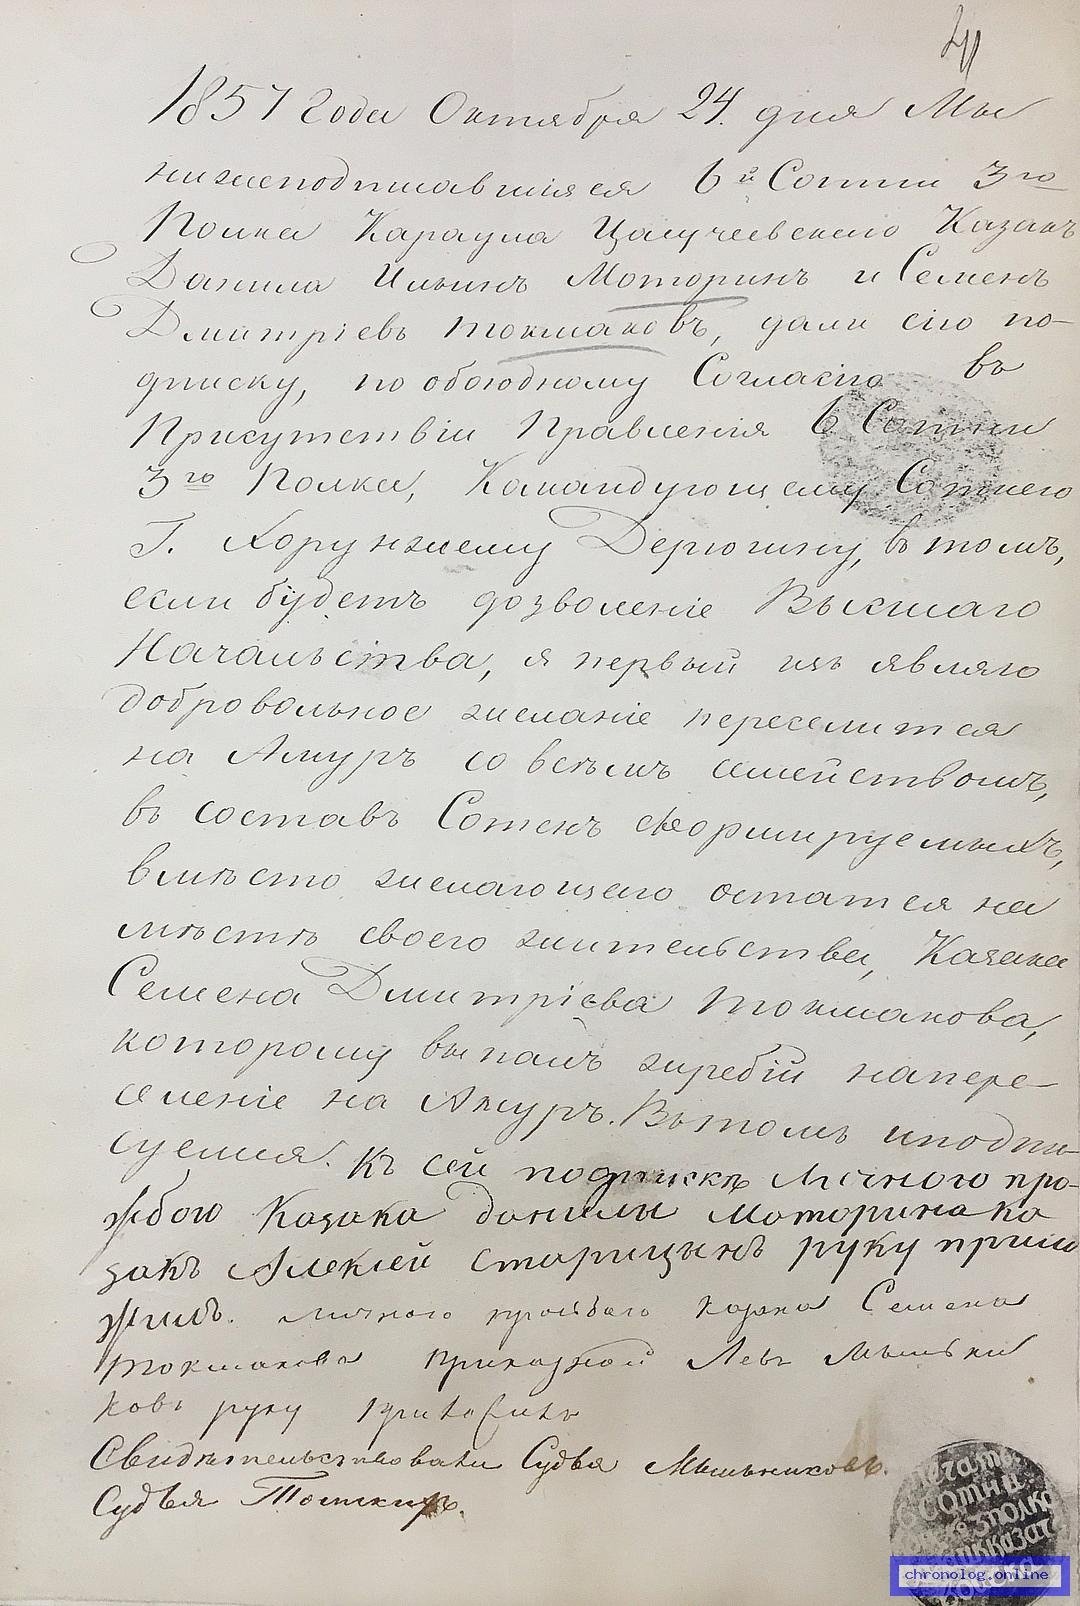 1857 Года Октября 24. дня Мы
нижеподписавшіяся 6й Сотни 3го
Полка Караула Цагучеевскаго Казакъ
Данила Ильинъ Моторинъ и Семенъ
Дмитріевъ Токмаковъ, дали сію по-
дписку, по обоюдному Согласію въ
Присутствіи Правленія 6 Сотни
3го Полка, Командующему Сотнею
Г. Хорунжему Дерюгину, в томъ,
если будетъ дозволеніе Высшаго
Начальства, я первый изъявляю
добровольное желаніе переселится
на Амуръ со всѣмъ семействомъ,
въ составъ Сотенъ Формируемыхъ,
вмѣсто желающего остатся на
мѣстѣ своего жительства, Казака
Семена Дмитріева Токмакова,
которому выпалъ жребій напере-
селеніе на Амуръ. Вътомъ иподпи-
суемся. Къ сей подпискѣ личного про-
жбою Казака данилы Моторина ка
закъ Алексей Старицынъ руку прило
жилъ. личного прозбаго казака Семена
Токмакова Приказной Левъ Мыльни
ковъ руку приложилъ
Свидѣтельствовали Судья Мыльниковъ.
Судья
Печать
Сотни
3 полка
казач
chronolog.online